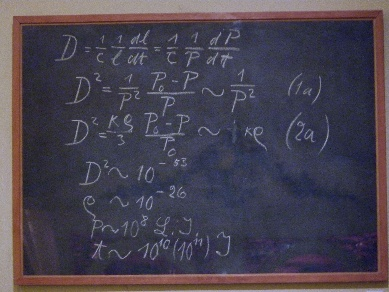 D = 1/c 1/l dl/dt = 1/c 1/P dP/dt
D² = 1/P² P₀-P/P ~ 1/P² (1a)
D² = κρ/3 P₀-P/P₀ ~ κρ (2a)
D² ~ 10⁻⁵³
ρ ~ 10⁻²⁶
P ~ 10⁸ L. J.
t ~ 10¹⁰ (10¹¹) J